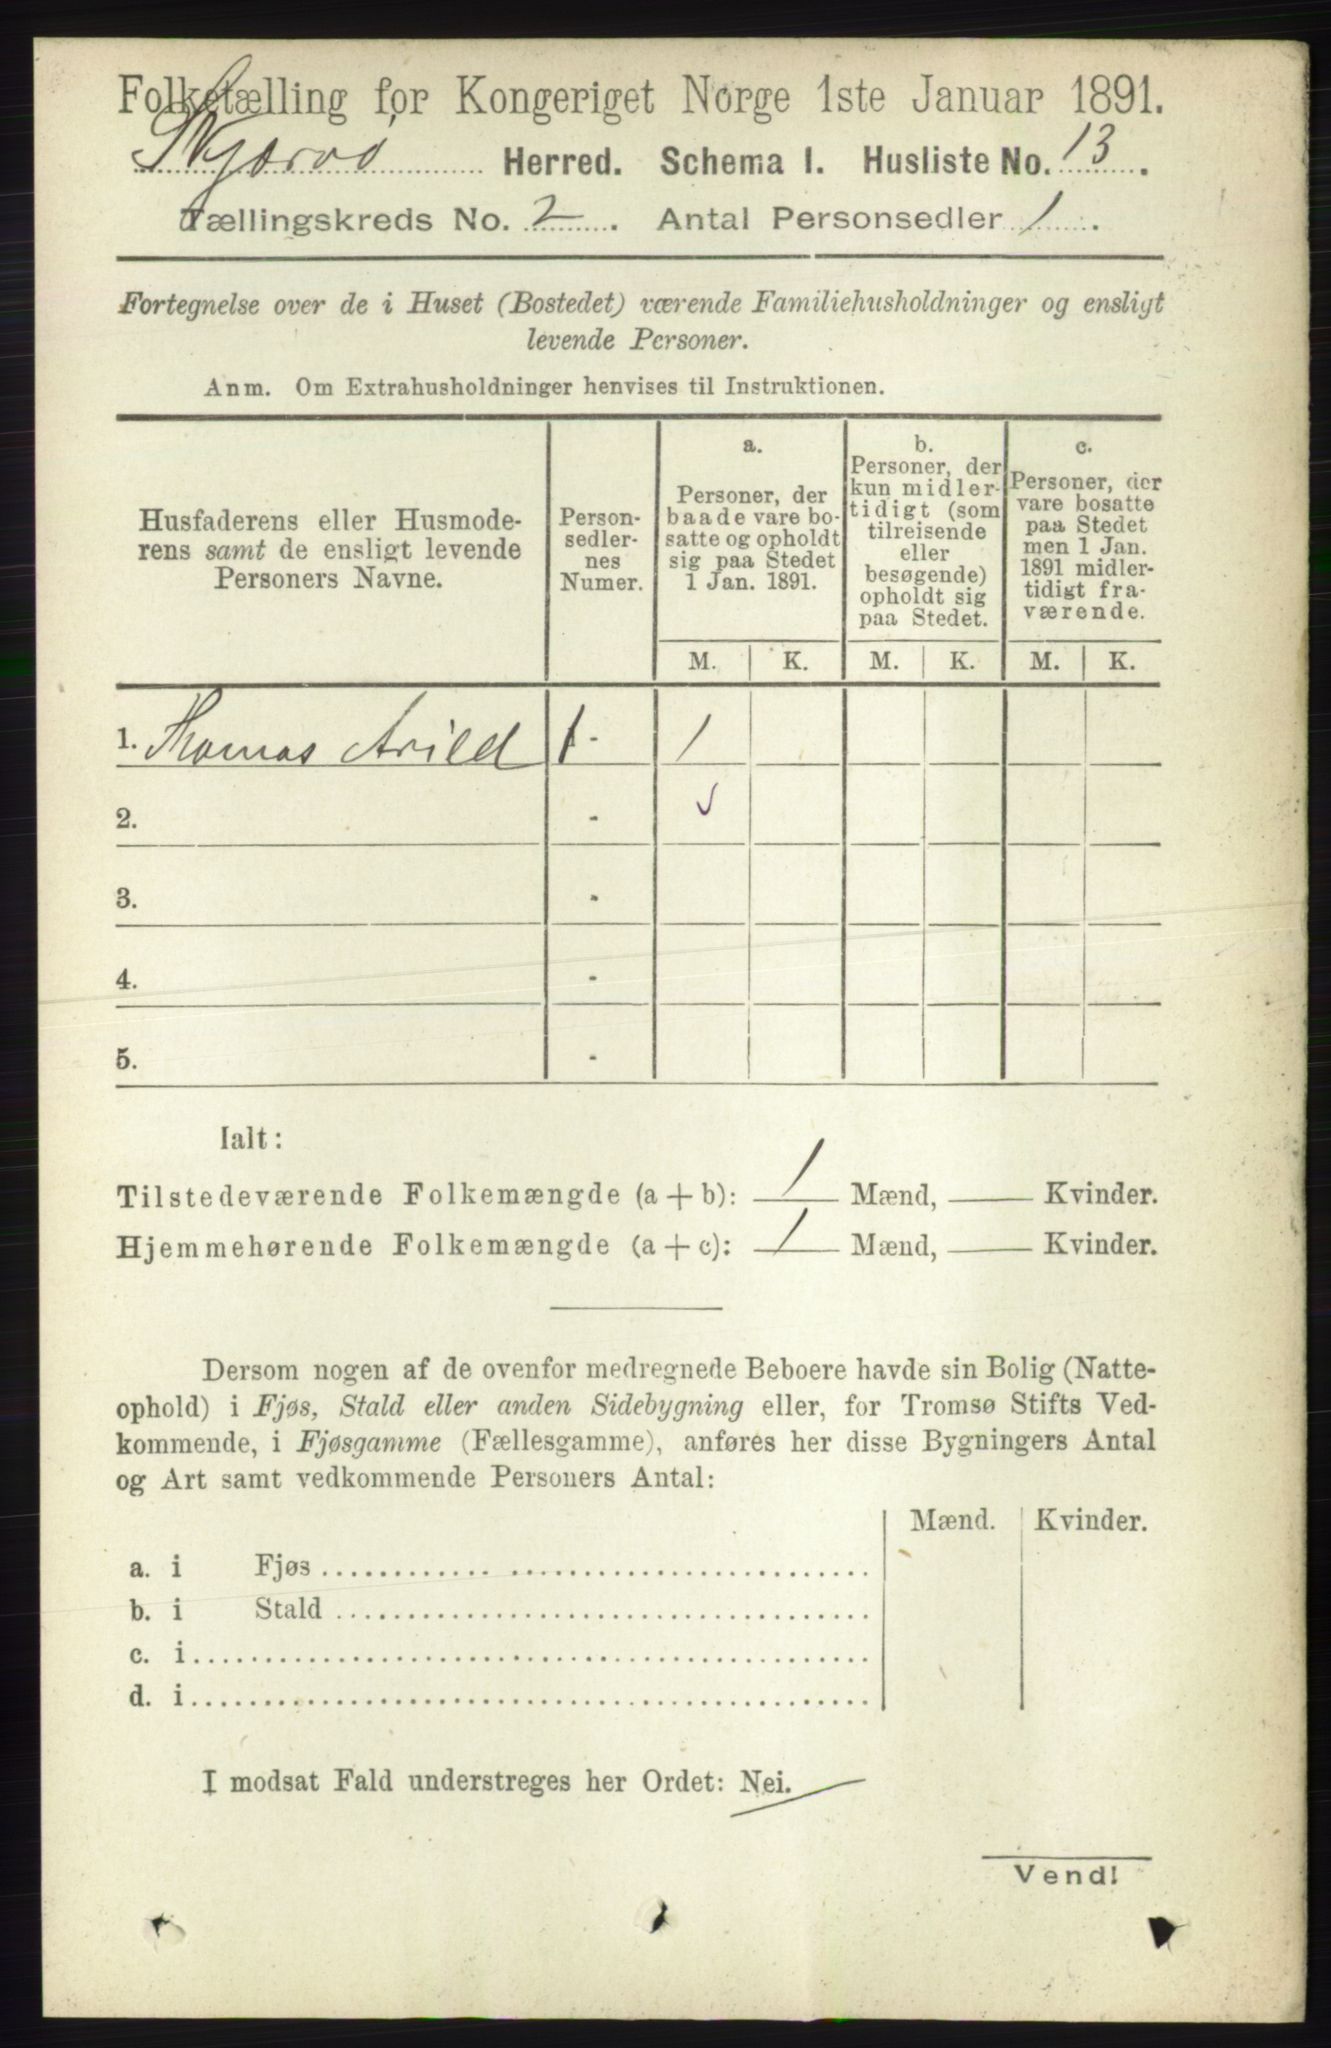 Folketælling for Kongeriget Norge 1ste Januar 1891.
Skjærvø Herred. Schema I. Husliste No. 13.
Tællingskreds No. 2. Antal Personsedler 1.
Fortegnelse over de i Huset (Bostedet) værende Familiehusholdninger og ensligt
levende Personer.
Anm. Om Extrahusholdninger henvises til Instruktionen.
Husfaderens eller Husmode-
rens samt de ensligt levende
Personers Navne.
Person-
sedler-
nes
Numer.
a.
Personer, der
baade vare bo-
satte og opholdt
sig paa Stedet
1 Jan. 1891.
b.
Personer, der
kun midler-
tidigt (som
tilreisende
eller
besøgende)
opholdt sig
paa Stedet.
c.
Personer, der
vare bosatte
paa Stedet
men 1 Jan.
1891 midler-
tidigt fra-
værende.
M. K. M. K. M. K.
1. Thomas Arild 1 - 1
2. -
3. -
4. -
5. -
Ialt:
Tilstedeværende Folkemængde (a + b): 1 Mænd, Kvinder.
Hjemmehørende Folkemængde (a + c): 1 Mænd, Kvinder.
Dersom nogen af de ovenfor medregnede Beboere havde sin Bolig (Natte-
ophold) i Fjøs, Stald eller anden Sidebygning eller, for Tromsø Stifts Ved-
kommende, i Fjøsgamme (Fællesgamme), anføres her disse Bygningers Antal
og Art samt vedkommende Personers Antal:
Mænd. Kvinder.
a. i Fjøs
b. i Stald
c. i
d. i
I modsat Fald understreges her Ordet: Nei.
Vend!